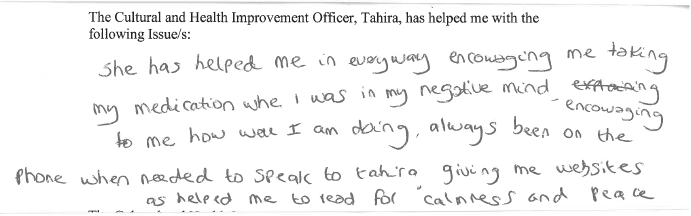 The Cultural and Health Improvement Officer, Tahira, has helped me with the
following Issue/s:
she has helped me in everyway encouraging me taking
my medication whe I was in my negative mind explaining
encouraging
to me how well I am doing, always been on the
phone when needed to speak to tahira giving me websites
as helped me to read for "calmness and peace